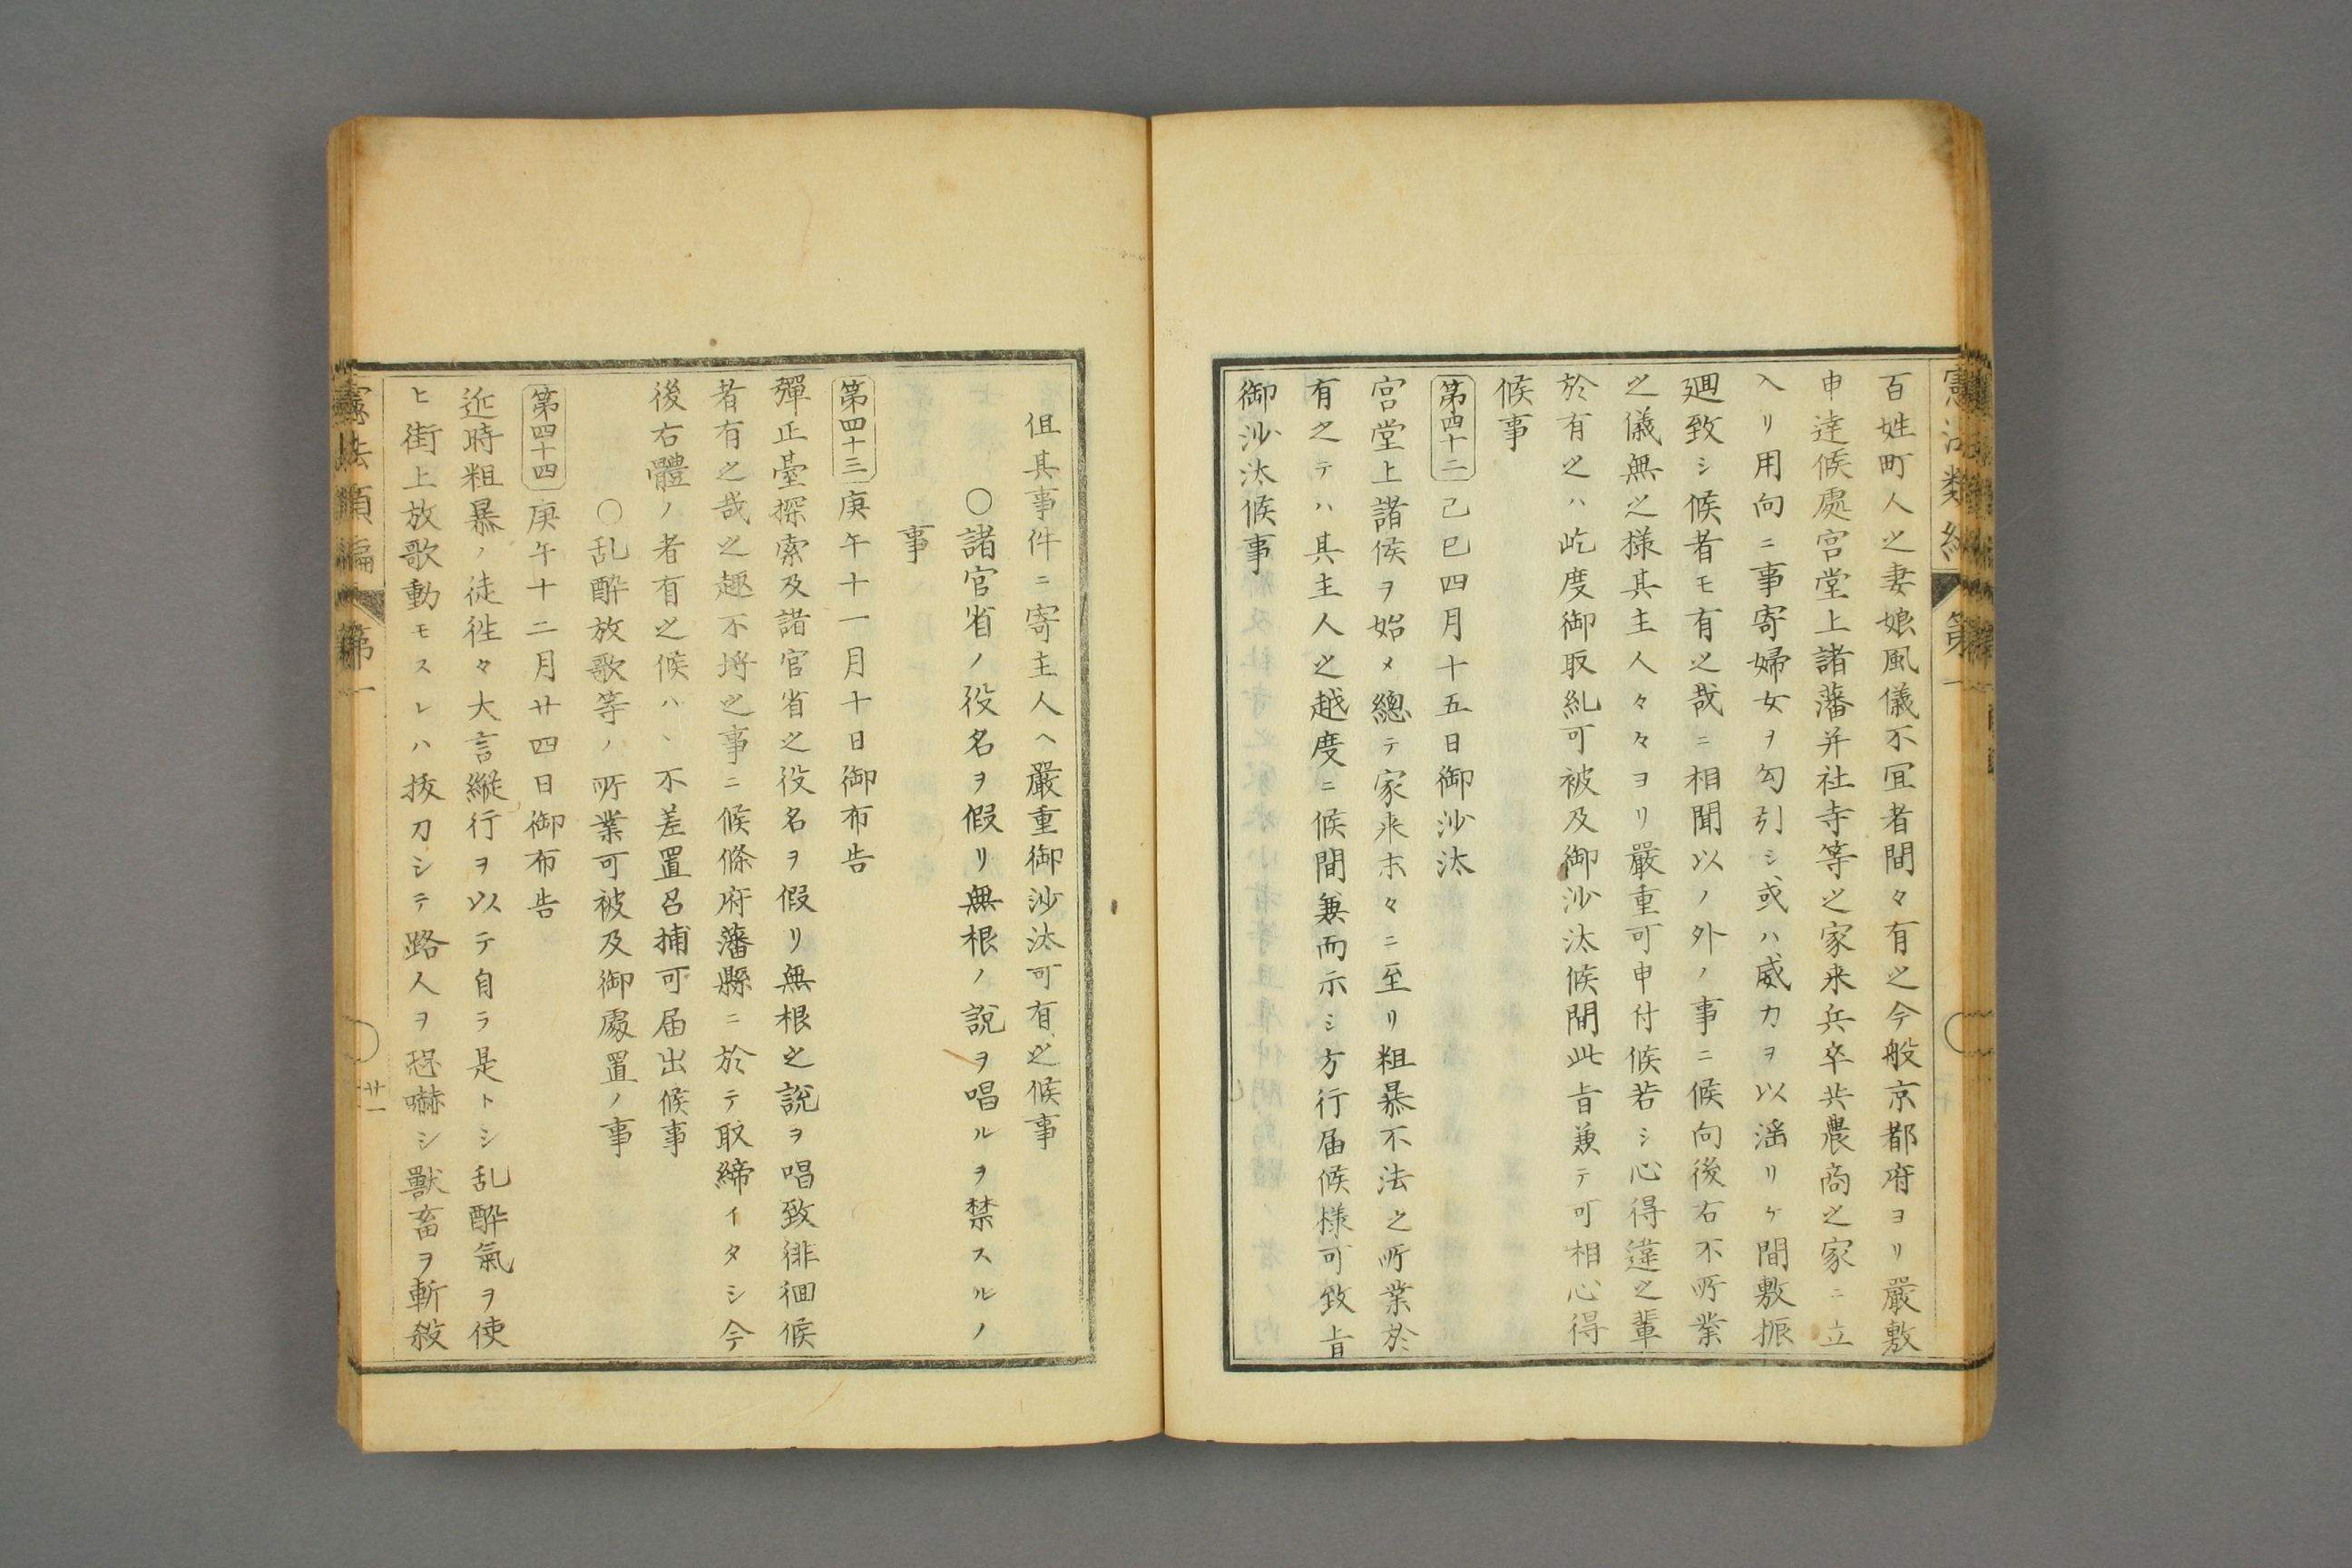 百姓町人之妻娘風儀不宜者間々有之今般京都府ヨリ嚴敷
申達候處宮堂上諸藩并社寺等之家来兵卒共農商之家ニ立
入リ用向ニ事寄婦女ヲ勾引シ或ハ威力ヲ以滛リケ間敷振
廻致シ候者モ有之哉ニ相聞以ノ外ノ事ニ候向後右不所業
之儀無之様其主人々々ヨリ嚴重可申付候若シ心得違之輩
於有之ハ屹度御取糺可被及御沙汰候間此旨兼テ可相心得
候事
第四十二己巳四月十五日御沙汰
宮堂上諸侯ヲ始メ總テ家来末々ニ至リ粗暴不法之所業於
有之テハ其主人之越度ニ候間兼而示シ方行届候様可致旨
御沙汰候事
但其事件ニ寄主人ヘ嚴重御沙汰可有之候事
○諸官省ノ役名ヲ假リ無根ノ說ヲ唱ルヲ禁スルノ
事
第四十三庚午十一月十日御布告
彈正臺探索及諸官省之役名ヲ假リ無根之說ヲ唱致徘徊候
者有之哉之趣不埓之事ニ候條府藩縣ニ於テ取締イタシ今
後右體ノ者有之候ハヽ不差置召捕可届出候事
○乱酔放歌等ノ所業可被及御處置ノ事
第四十四庚午十二月廿四日御布告
近時粗暴ノ徒徃々大言縱行ヲ以テ自ラ是トシ乱酔氣ヲ使
ヒ街上放歌動モスレハ抜刀シテ路人ヲ恐嚇シ獸畜ヲ斬殺
憲法類編 第一
廿一